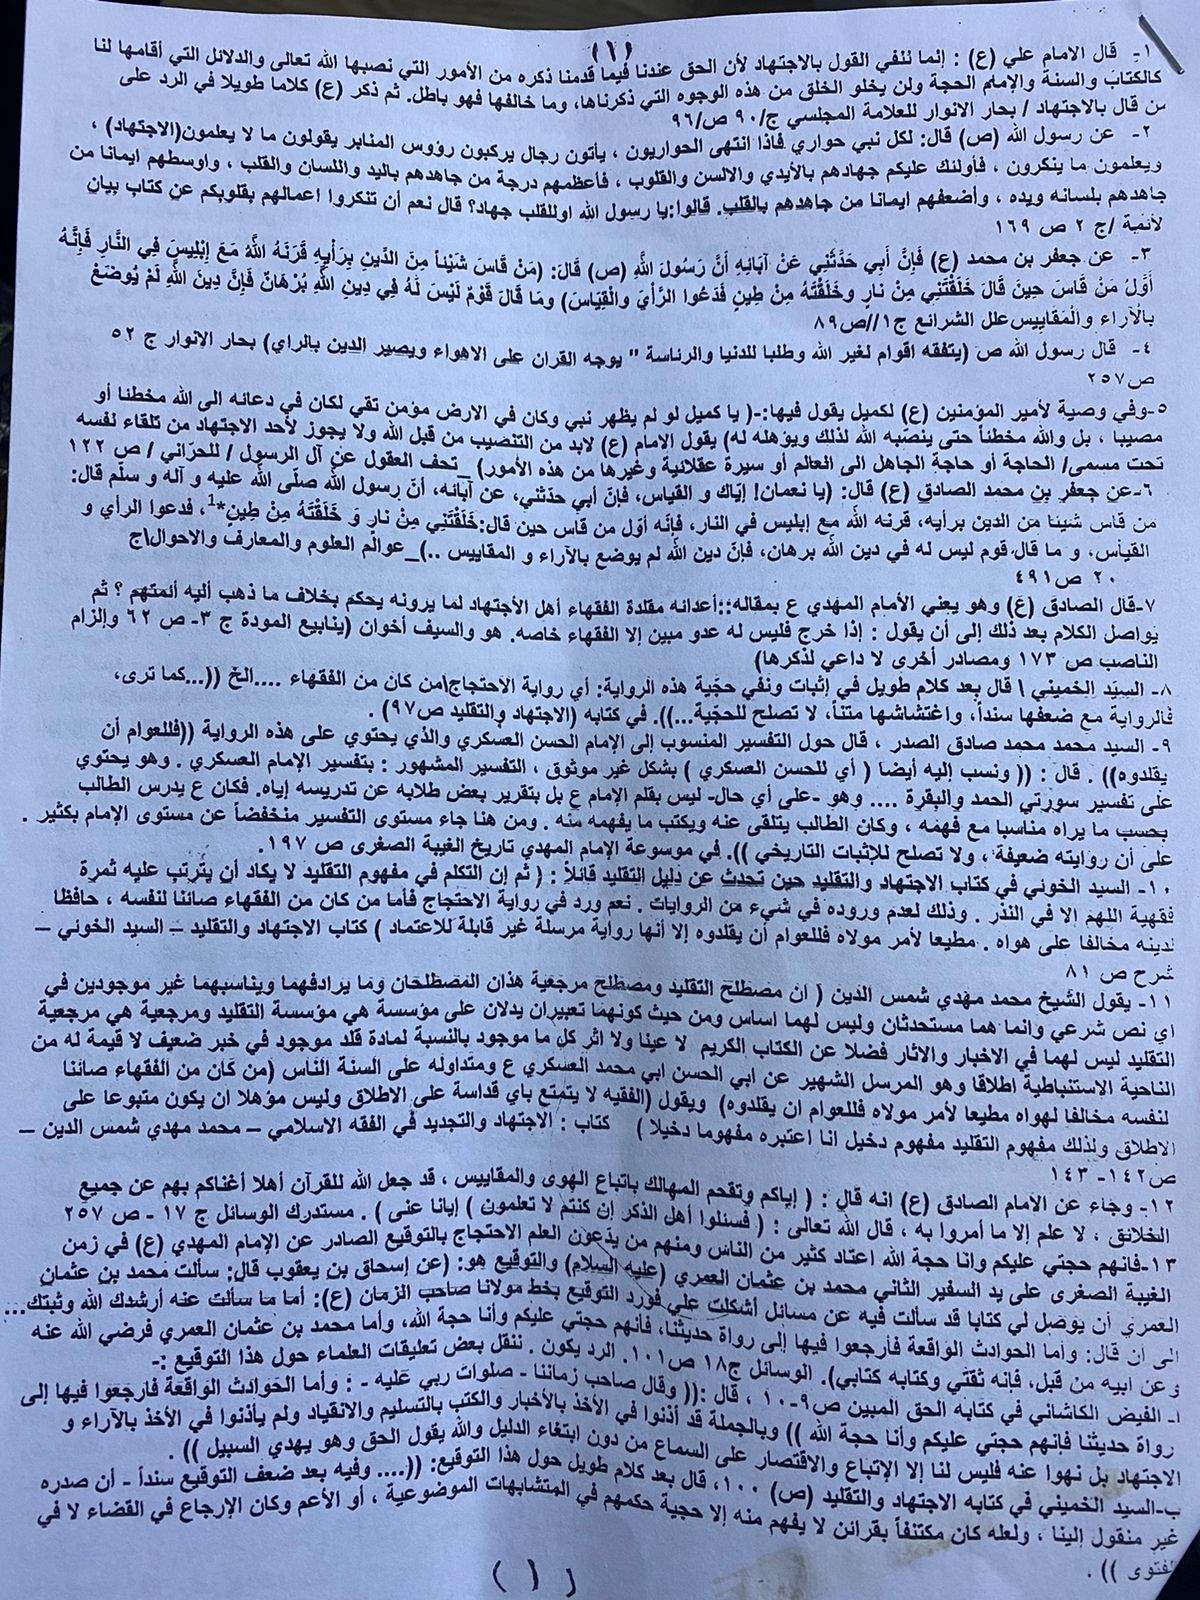 (١)
١- قال الامام علي (ع) : إنما ننفي القول بالاجتهاد لأن الحق عندنا فيما قدمنا ذكره من الأمور التي نصبها الله تعالى والدلائل التي أقامها لنا
كالكتاب والسنة والإمام الحجة ولن يخلو الخلق من هذه الوجوه التي ذكرناها، وما خالفها فهو باطل. ثم ذكر (ع) كلاما طويلا في الرد على
من قال بالاجتهاد / بحار الانوار للعلامة المجلسي ج/٩٠ ص/٩٦
٢- عن رسول الله (ص) قال: لكل نبي حواري فاذا انتهى الحواريون ، يأتون رجال يركبون رؤوس المنابر يقولون ما لا يعلمون(الاجتهاد) ،
ويعلمون ما ينكرون ، فأولئك عليكم جهادهم بالأيدي والالسن والقلوب ، فأعظمهم درجة من جاهدهم باليد واللسان والقلب ، واوسطهم ايمانا من
جاهدهم بلسانه ويده ، وأضعفهم ايمانا من جاهدهم بالقلب. قالوا:يا رسول الله اوللقلب جهاد؟ قال نعم أن تنكروا اعمالهم بقلوبكم عن كتاب بيان
لأئمة /ج ٢ ص ١٦٩
٣- عن جعفر بن محمد (ع) فَإِنَّ أَبِي حَدَّثَنِي عَنْ آبَائِهِ أَنَّ رَسُولَ اللَّهِ (ص) قَالَ: (مَنْ قَاسَ شَيْئاً مِنَ الدِّينِ بِرَأْيِهِ قَرَنَهُ اللَّهُ مَعَ إِبْلِيسَ فِي النَّارِ فَإِنَّهُ
أَوَّلُ مَنْ قَاسَ حِينَ قَالَ خَلَقْتَنِي مِنْ نارٍ وخَلَقْتَهُ مِنْ طِينٍ فَدَعُوا الرَّأْيَ والْقِيَاسَ) ومَا قَالَ قَوْمٌ لَيْسَ لَهُ فِي دِينِ اللَّهِ بُرْهَانٌ فَإِنَّ دِينَ اللَّهِ لَمْ يُوضَعْ
بِالْآرَاءِ والْمَقَايِيسِ علل الشرائع ج١//ص٨٩
٤- قال رسول الله ص (يتفقه اقوام لغير الله وطلبا للدنيا والرئاسة " يوجه القران على الاهواء ويصير الدين بالراي) بحار الانوار ج ٥٢
ص٢٥٧
٥-وفي وصية لأمير المؤمنين (ع) لكميل يقول فيها:-( يا كميل لو لم يظهر نبي وكان في الارض مؤمن تقي لكان في دعائه الى الله مخطئا أو
مصيبا ، بل والله مخطئاً حتى ينصبه الله لذلك ويؤهله له) يقول الإمام (ع) لابد من التنصيب من قبل الله ولا يجوز لأحد الاجتهاد من تلقاء نفسه
تحت مسمى/ الحاجة أو حاجة الجاهل الى العالم أو سيرة عقلائية وغيرها من هذه الأمور) _تحف العقول عن آل الرسول / للحرّاني / ص ١٢٢
٦-عن جعفر بن محمد الصادق (ع) قال: (يا نعمان! إيّاك و القياس، فإنّ أبي حدثني، عن آبائه، أنّ رسول الله صلّى الله عليه و آله و سلّم قال:
من قاس شيئا من الدين برأيه، قرنه الله مع إبليس في النار، فإنّه أوّل من قاس حين قال:خَلَقْتَنِي مِنْ نارٍ وَ خَلَقْتَهُ مِنْ طِينٍ*1، فدعوا الرأي و
القياس، و ما قال قوم ليس له في دين الله برهان، فإنّ دين الله لم يوضع بالآراء و المقاييس ..)_عوالم العلوم والمعارف والاحوال\ج
٢٠ ص٤٩١
٧-قال الصادق (ع) وهو يعني الأمام المهدي ع بمقاله::أعدائه مقلدة الفقهاء أهل الأجتهاد لما يرونه يحكم بخلاف ما ذهب أليه أئمتهم ؟ ثم
يواصل الكلام بعد ذلك إلى أن يقول : إذا خرج فليس له عدو مبين إلا الفقهاء خاصه. هو والسيف أخوان (ينابيع المودة ج ٣- ص ٦٢ وإلزام
الناصب ص ١٧٣ ومصادر أخرى لا داعي لذكرها)
٨- السيّد الخميني \ قال بعد كلام طويل في إثبات ونفي حجّية هذه الرواية: أي رواية الاحتجاج\من كان من الفقهاء ....الخ ((...كما ترى،
فالرواية مع ضعفها سنداً، واغتشاشها متناً، لا تصلح للحجّية...)). في كتابه (الاجتهاد والتقليد ص٩٧) .
٩- السيد محمد محمد صادق الصدر ، قال حول التفسير المنسوب إلى الإمام الحسن العسكري والذي يحتوي على هذه الرواية ((فللعوام أن
يقلدوه)) . قال : (( ونسب إليه أيضا ( أي للحسن العسكري ) بشكل غير موثوق ، التفسير المشهور : بتفسير الإمام العسكري . وهو يحتوي
على تفسير سورتي الحمد والبقرة .... وهو -على أي حال- ليس بقلم الإمام ع بل بتقرير بعض طلابه عن تدريسه إياه. فكان ع يدرس الطالب
بحسب ما يراه مناسبا مع فهمه ، وكان الطالب يتلقى عنه ويكتب ما يفهمه منه . ومن هنا جاء مستوى التفسير منخفضاً عن مستوى الإمام بكثير .
على أن روايته ضعيفة ، ولا تصلح للإثبات التاريخي )). في موسوعة الإمام المهدي تاريخ الغيبة الصغرى ص ١٩٧.
١٠- السيد الخوئي في كتاب الاجتهاد والتقليد حين تحدث عن دليل التقليد قائلاً : ( ثم إن التكلم في مفهوم التقليد لا يكاد أن يترتب عليه ثمرة
فقهية اللهم الا في النذر . وذلك لعدم وروده في شيء من الروايات . نعم ورد في رواية الاحتجاج فأما من كان من الفقهاء صائنا لنفسه ، حافظا
لدينه مخالفا على هواه . مطيعا لأمر مولاه فللعوام أن يقلدوه إلا أنها رواية مرسلة غير قابلة للاعتماد ) كتاب الاجتهاد والتقليد – السيد الخوئي –
شرح ص ٨١
١١- يقول الشيخ محمد مهدي شمس الدين ( ان مصطلح التقليد ومصطلح مرجعية هذان المصطلحان وما يرادفهما ويناسبهما غير موجودين في
اي نص شرعي وانما هما مستحدثان وليس لهما اساس ومن حيث كونهما تعبيران يدلان على مؤسسة هي مؤسسة التقليد ومرجعية هي مرجعية
التقليد ليس لهما في الاخبار والاثار فضلا عن الكتاب الكريم لا عينا ولا اثر كل ما موجود بالنسبة لمادة قلد موجود في خبر ضعيف لا قيمة له من
الناحية الاستنباطية اطلاقا وهو المرسل الشهير عن ابي الحسن ابي محمد العسكري ع ومتداوله على السنة الناس (من كان من الفقهاء صائنا
لنفسه مخالفا لهواه مطيعا لأمر مولاه فللعوام ان يقلدوه) ويقول (الفقيه لا يتمتع باي قداسة على الاطلاق وليس مؤهلا ان يكون متبوعا على
الاطلاق ولذلك مفهوم التقليد مفهوم دخيل انا اعتبره مفهوما دخيلا ) كتاب : الاجتهاد والتجديد في الفقه الاسلامي – محمد مهدي شمس الدين –
ص١٤٢- ١٤٣
١٢- وجاء عن الامام الصادق (ع) انه قال : ( إياكم وتقحم المهالك باتباع الهوى والمقاييس ، قد جعل الله للقرآن أهلا أغناكم بهم عن جميع
الخلائق ، لا علم إلا ما أمروا به ، قال الله تعالى : ( فسئلوا أهل الذكر إن كنتم لا تعلمون ) إيانا عنى ) . مستدرك الوسائل ج ١٧ - ص ٢٥٧
١٣-فانهم حجتي عليكم وانا حجة الله اعتاد كثير من الناس ومنهم من يدّعون العلم الاحتجاج بالتوقيع الصادر عن الإمام المهدي (ع) في زمن
الغيبة الصغرى على يد السفير الثاني محمد بن عثمان العمري (عليه السلام) والتوقيع هو: (عن إسحاق بن يعقوب قال: سألت محمد بن عثمان
العمري أن يوصل لي كتابا قد سألت فيه عن مسائل أشكلت علي فورد التوقيع بخط مولانا صاحب الزمان (ع): أما ما سألت عنه أرشدك الله وثبتك...
الى ان قال: وأما الحوادث الواقعة فأرجعوا فيها إلى رواة حديثنا، فأنهم حجتي عليكم وأنا حجة الله، وأما محمد بن عثمان العمري فرضي الله عنه
وعن ابيه من قبل، فإنه ثقتي وكتابه كتابي). الوسائل ج١٨ ص١٠١. الرد يكون . ننقل بعض تعليقات العلماء حول هذا التوقيع :-
ا- الفيض الكاشاني في كتابه الحق المبين ص٩-١٠ ، قال :(( وقال صاحب زماننا - صلوات ربي عليه - : وأما الحوادث الواقعة فارجعوا فيها إلى
رواة حديثنا فإنهم حجتي عليكم وأنا حجة الله )) وبالجملة قد أذنوا في الأخذ بالأخبار والكتب بالتسليم والانقياد ولم يأذنوا في الأخذ بالآراء و
الاجتهاد بل نهوا عنه فليس لنا إلا الإتباع والاقتصار على السماع من دون ابتغاء الدليل والله يقول الحق وهو يهدي السبيل )) .
ب-السيد الخميني في كتابه الاجتهاد والتقليد (ص) ١٠٠، قال بعد كلام طويل حول هذا التوقيع: ((.... وفيه بعد ضعف التوقيع سنداً - أن صدره
غير منقول إلينا ، ولعله كان مكتنفاً بقرائن لا يفهم منه إلا حجية حكمهم في المتشابهات الموضوعية ، أو الأعم وكان الإرجاع في القضاء لا في
لفتوى )) .
(١)